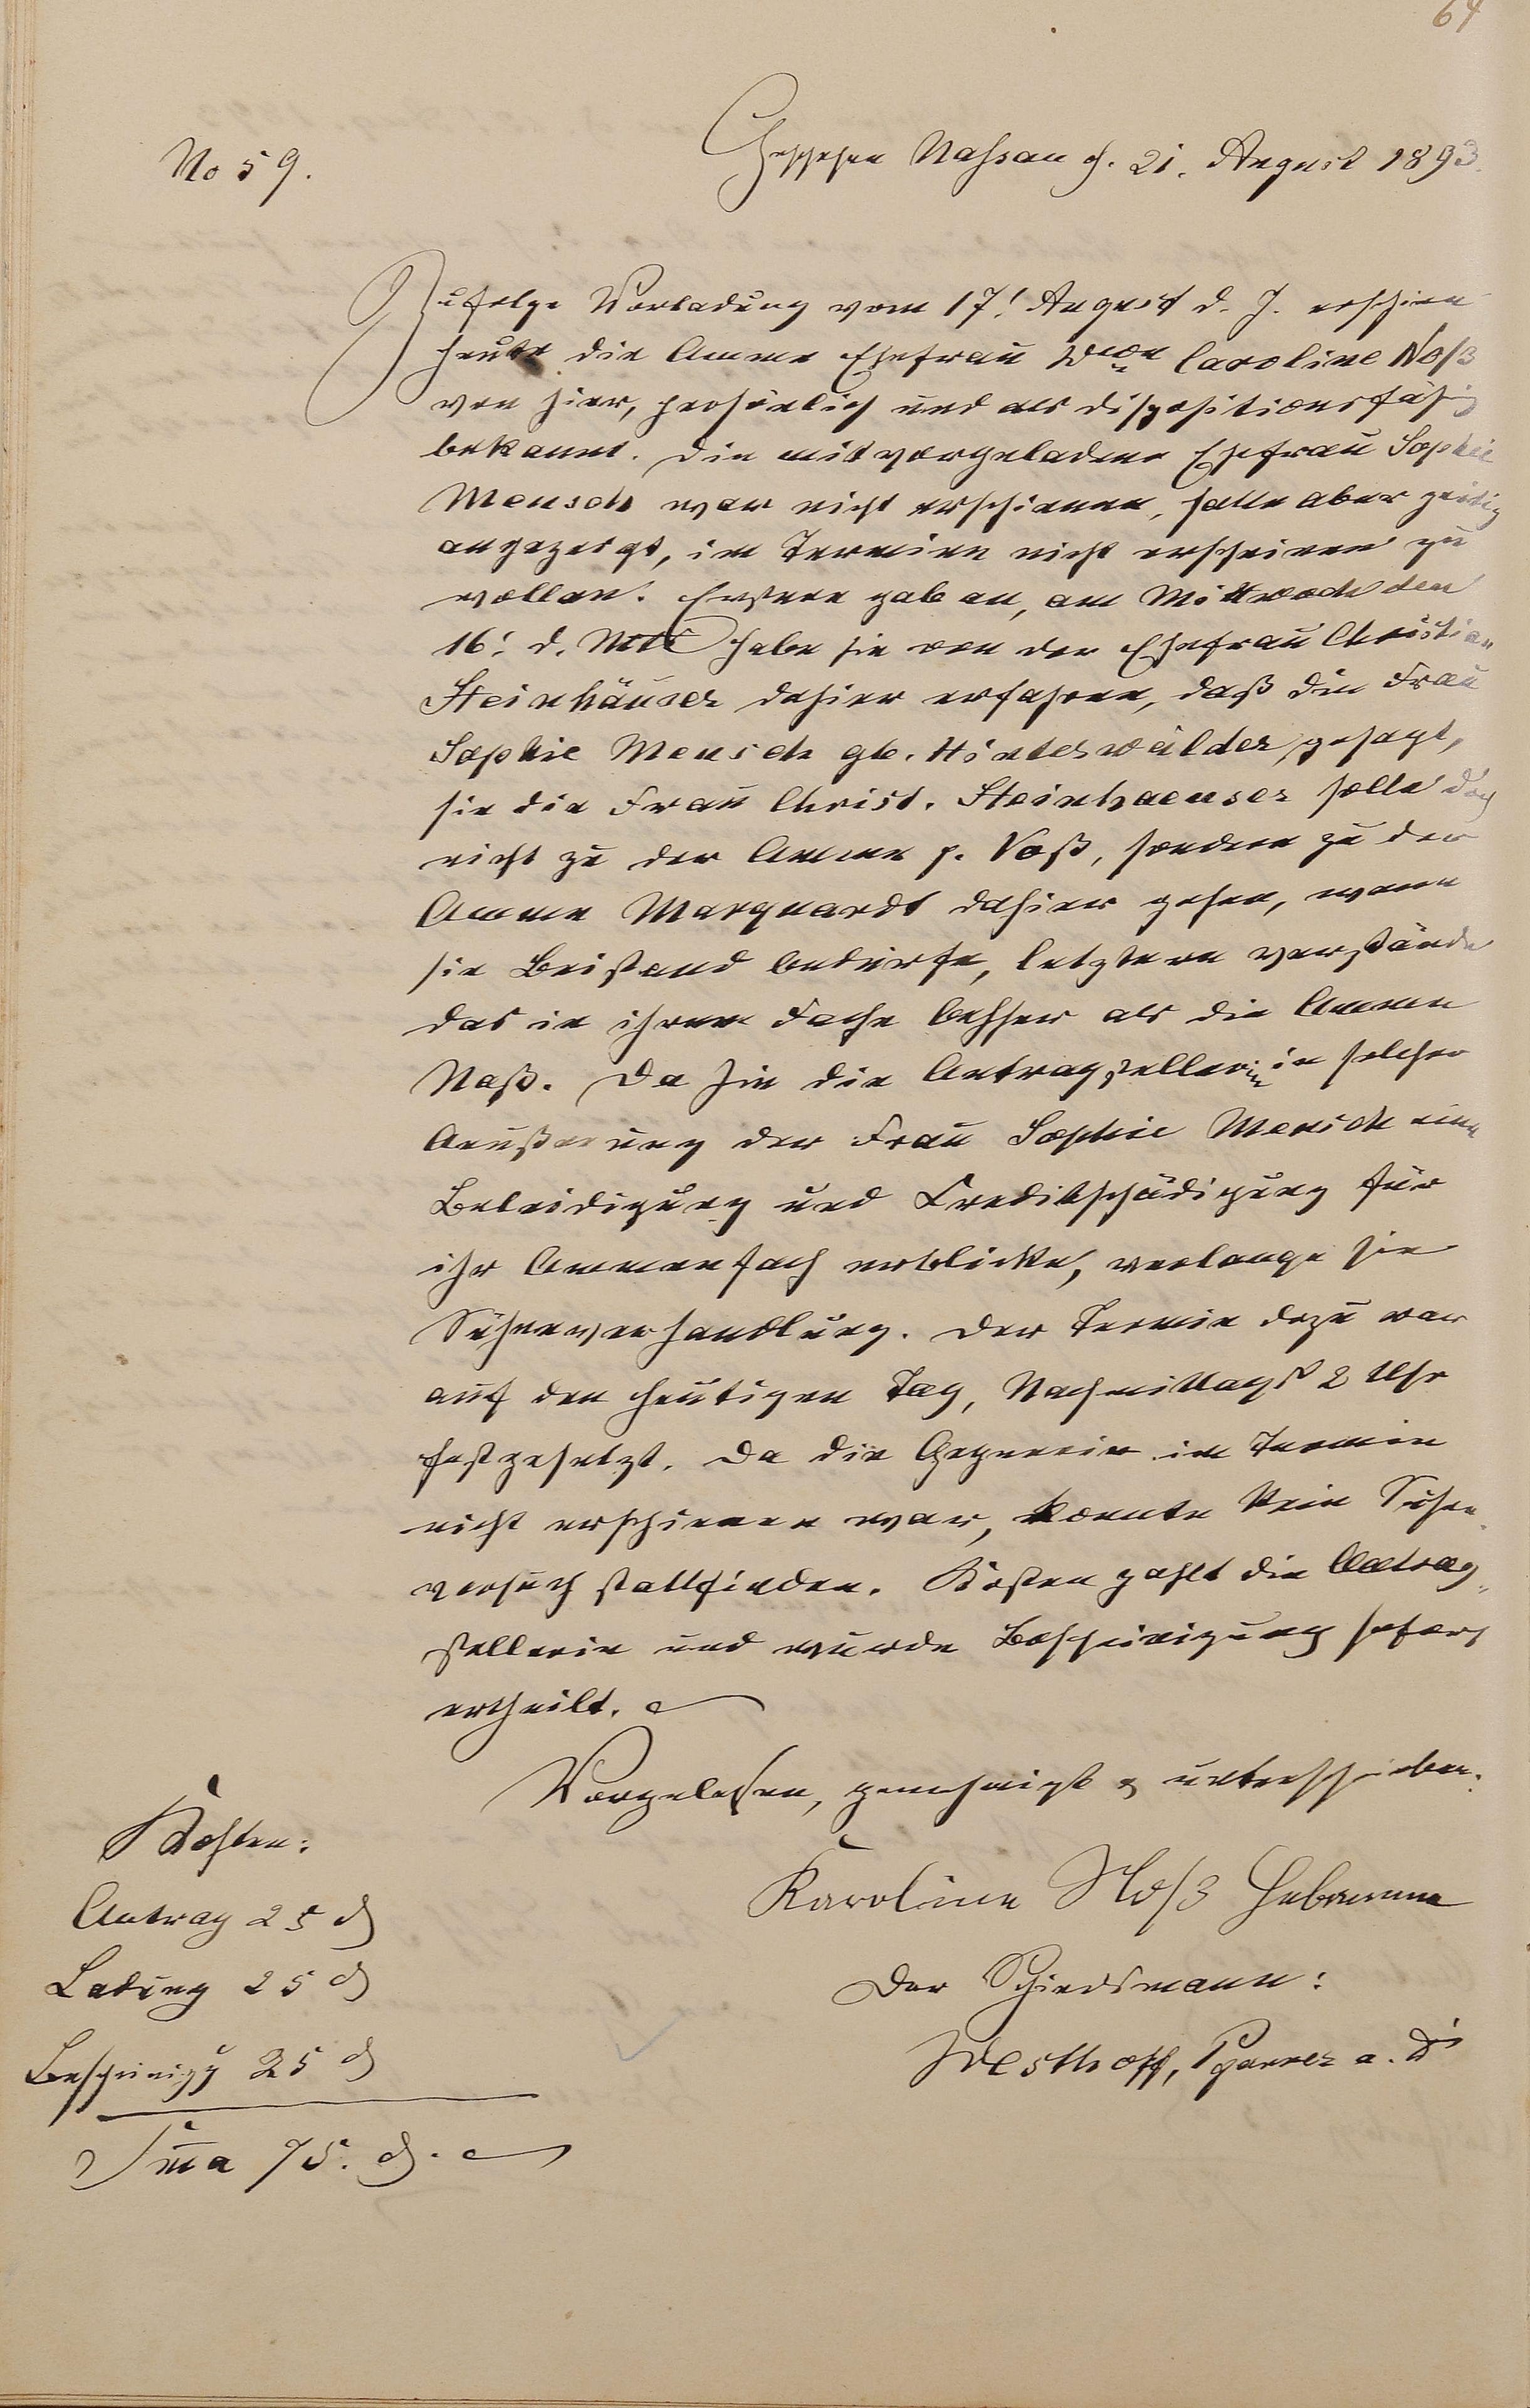 64
No 59.
Geschehen Nassau d. 21. August 1893.
Zufolge Vorladung vom 17. August d. J. erschien
heute die Amme Ehefrau Wwe Caroline Noß
von hier, persönlich und als dispositionsfähig
bekannt. Die mitvorgeladene Ehefrau Sophie
Mensch war nicht erschienen, hatte aber zeitig
angezeigt, im Termine nicht erscheinen zu
wollen. Erstere gab an, am Mittwoch den
16. d. Mts habe sie von der Ehefrau Christian
Steinhäuser dahier erfahren, daß die Frau
Sophie Mensch gb. Hinterwälder, gesagt,
sie die Frau Christ. Steinhaeuser solle doch
nicht zu der Amme p. Noß, sondern zu der
Amme Marquardt dahier gehen, wenn
sie Beistand bedürfe, letztere verstände
das in ihrem Fache besser als die Amme
Noß. Da sie die Antragstellerin in solcher
Aeußerung der Frau Sophie Mensch eine
Beleidigung und Creditschädigung für
ihr Ammenfach erblicke, verlange sie
Sühneverhandlung. Der Termin dazu war
auf den heutigen Tag, Nachmittags 2 Uhr
festgesetzt. Da die Gegnerin im Termin
nicht erschienen war, konnte kein Sühne-
versuch stattfinden. Kosten zahlt die Antrag-
stellerin und wurde Bescheinigung sofort
ertheilt.
Vorgelesen, genehmigt & unterschrieben.
Karoline Noß Hebamme
Der Schiedsmann:
Westhoff, Pfarrer a. D.
Kosten:
Antrag 25 ₰
Ladung 25 ₰
Bescheinigg 25 ₰
Sma 75. ₰.